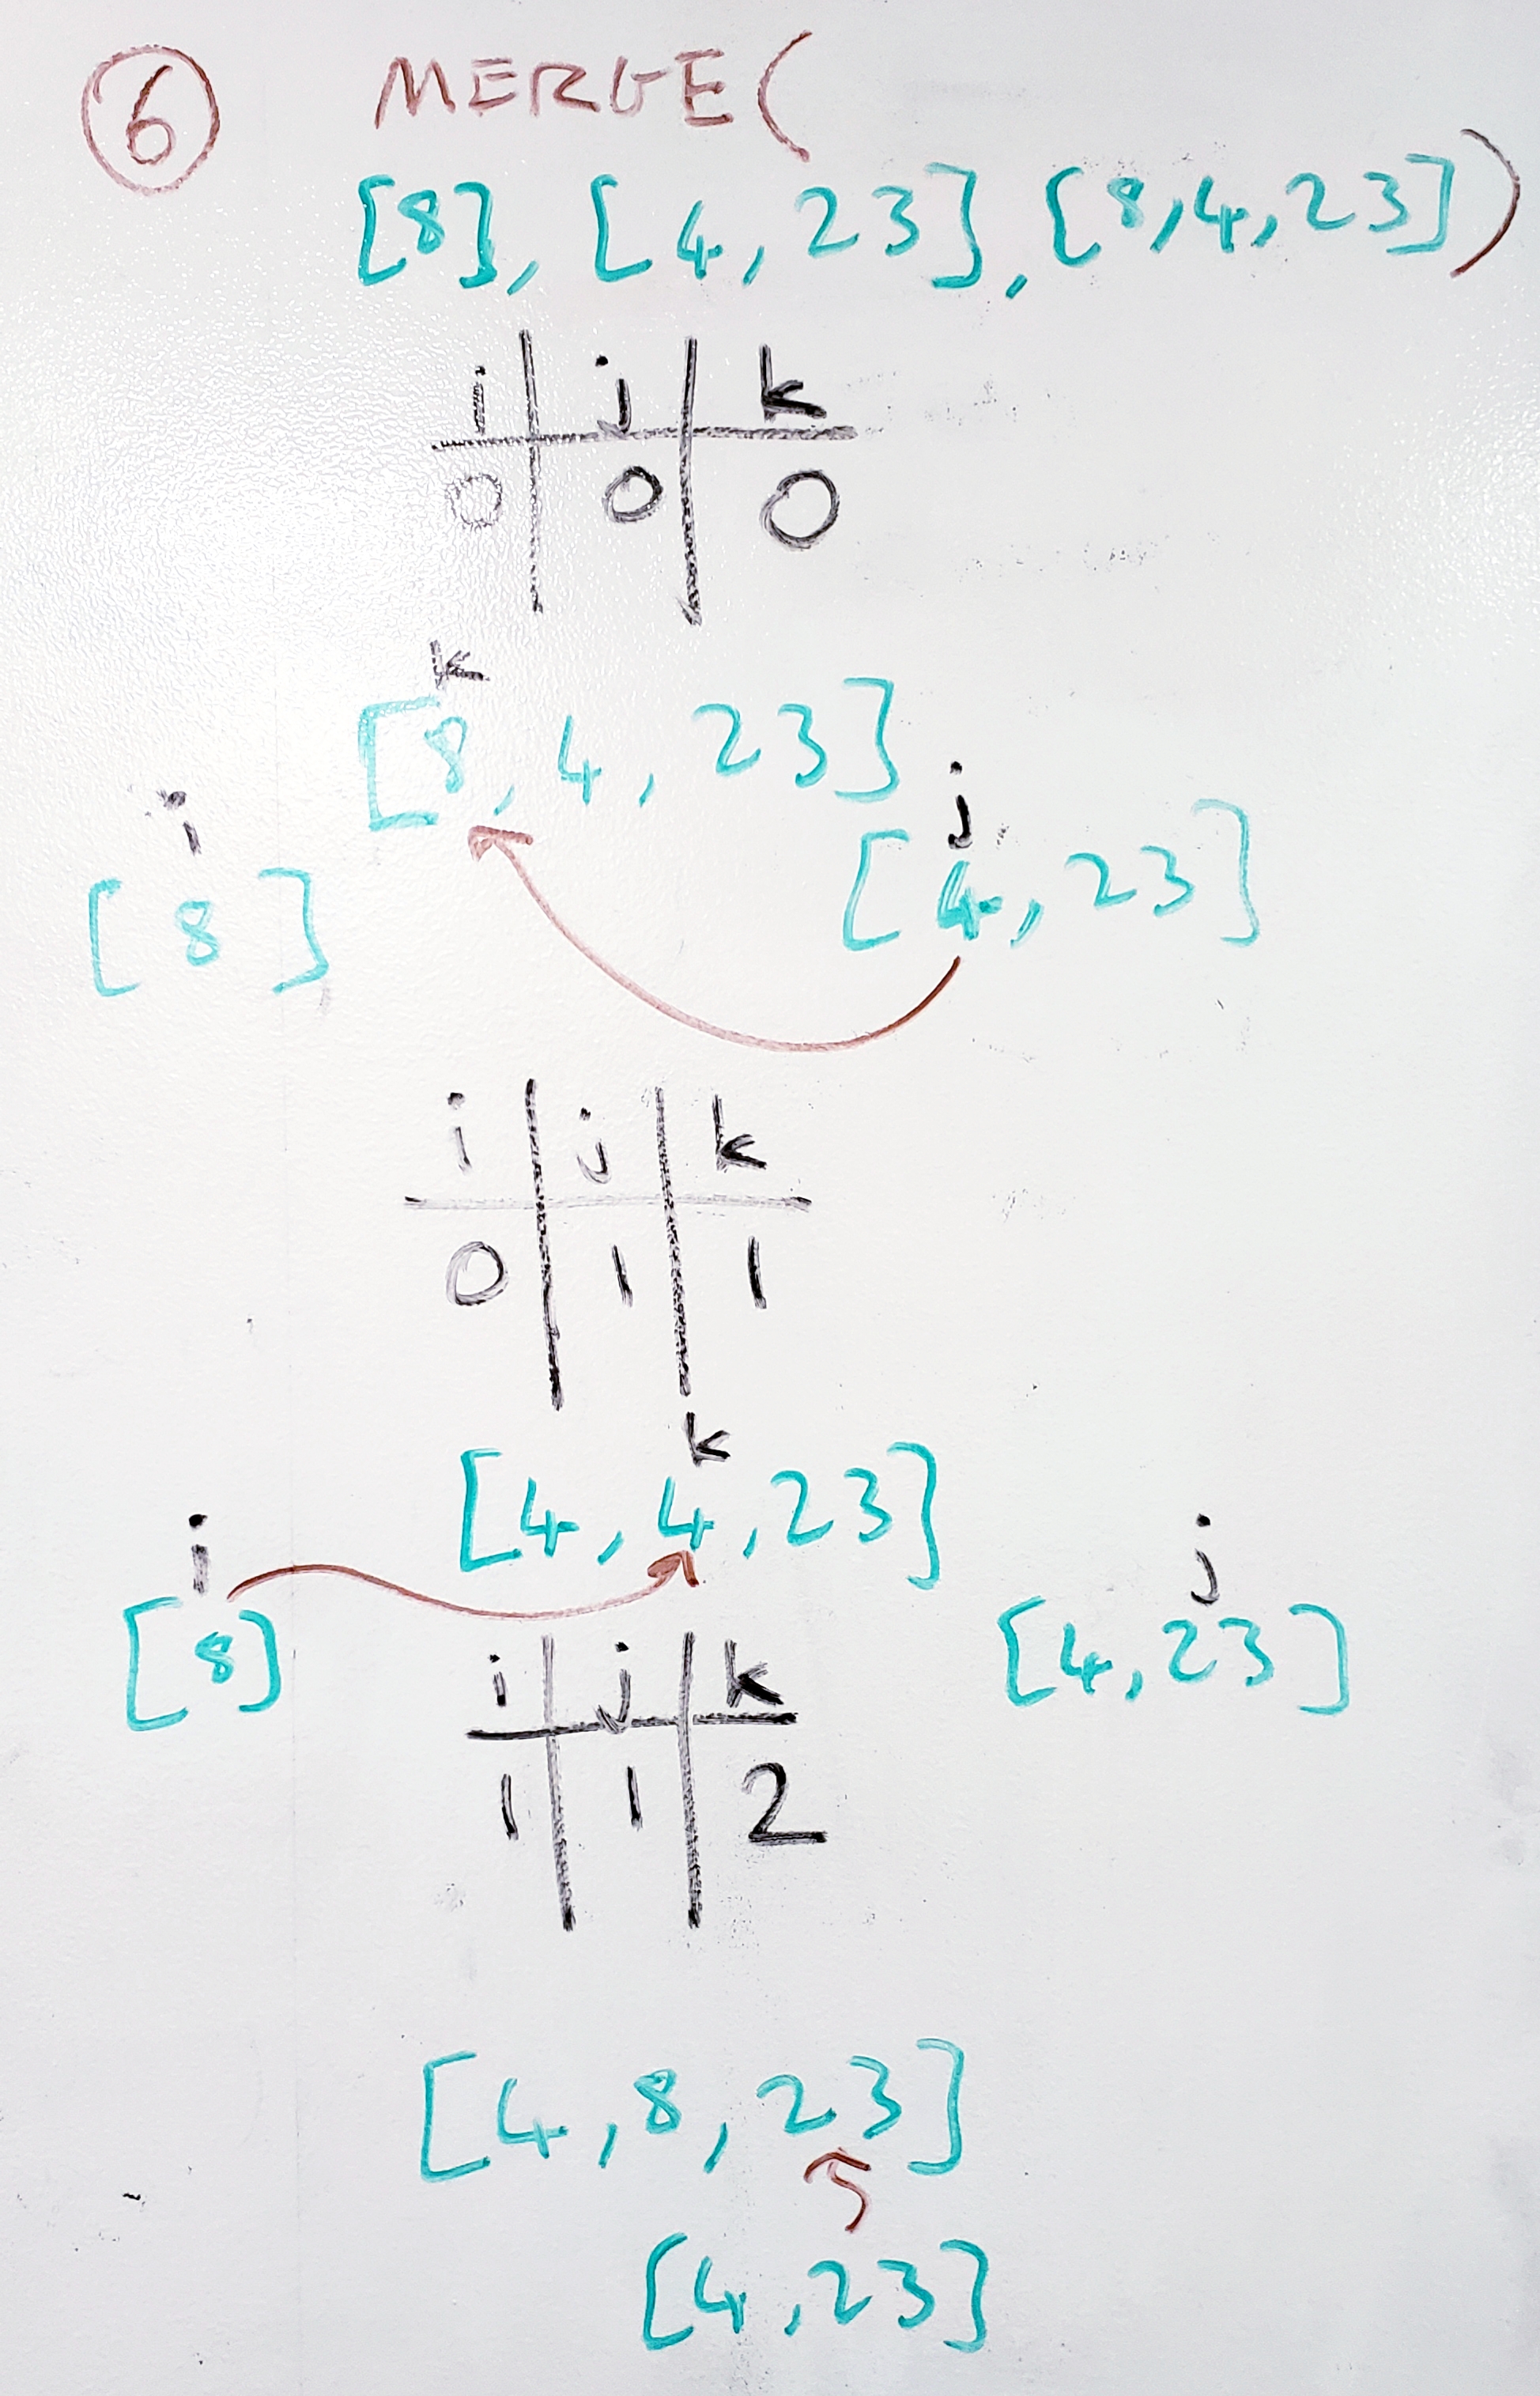 6 MERGE(
[8], [4, 23], [8,4,23])
i j k
0 0 0
k
[8, 4, 23]
i j
[8] [4, 23]
i j k
0 1 1
k
[4, 4, 23]
i j
[8] [4, 23]
i j k
1 1 2
[4, 8, 23]
[4, 23]